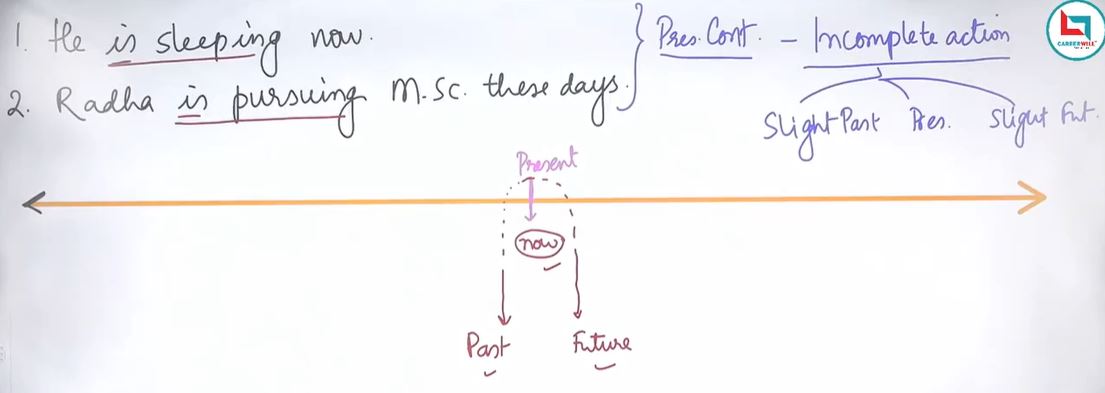 1. He is sleeping now.
2. Radha is pursuing M.Sc. these days.
Pres. Cont. - Incomplete action
Slight Past Pres. Slight Fut.
CAREERWILL
Present
now
Past Future